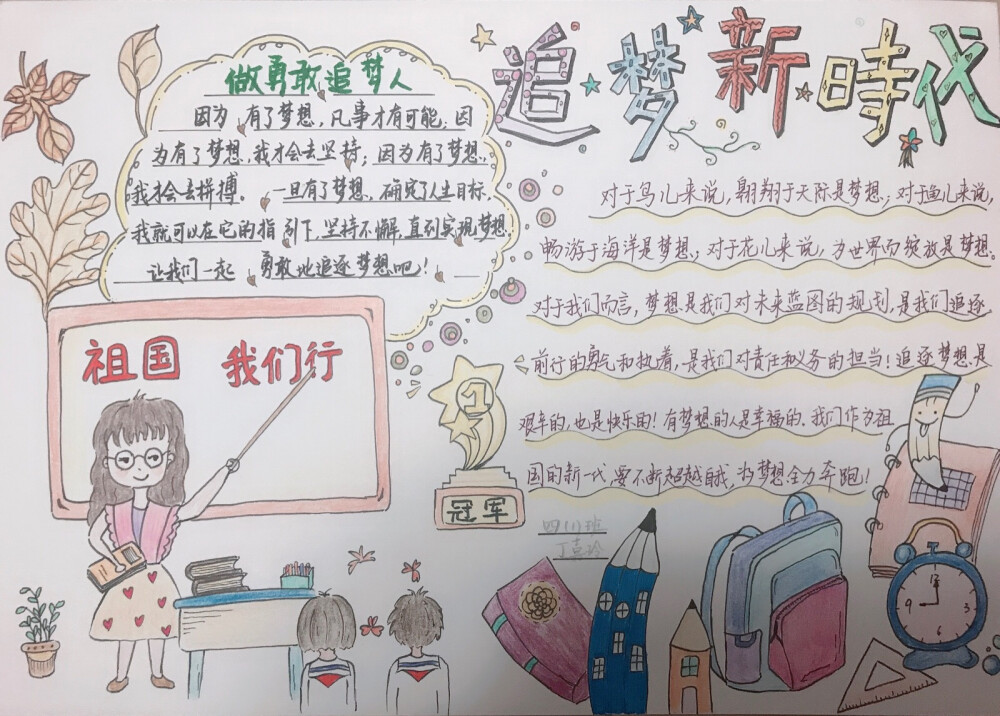 追梦新時代
做勇敢追梦人
因为有了梦想，凡事才有可能；因
为有了梦想，我才会去坚持；因为有了梦想，
我才会去拼搏。一旦有了梦想，确定了人生目标，
我就可以在它的指引下，坚持不懈，直到实现梦想。
让我们一起勇敢地追逐梦想吧！
对于鸟儿来说，翱翔于天际是梦想；对于鱼儿来说，
畅游于海洋是梦想；对于花儿来说，为世界而绽放是梦想。
对于我们而言，梦想是我们对未来蓝图的规划，是我们追逐
前行的勇气和执着，是我们对责任和义务的担当！追逐梦想是
艰辛的，也是快乐的！有梦想的人是幸福的。我们作为祖
国的新一代要不断超越自我，为梦想全力奔跑！
祖国 我们行
1
冠军
四(1)班
12
9 3
6